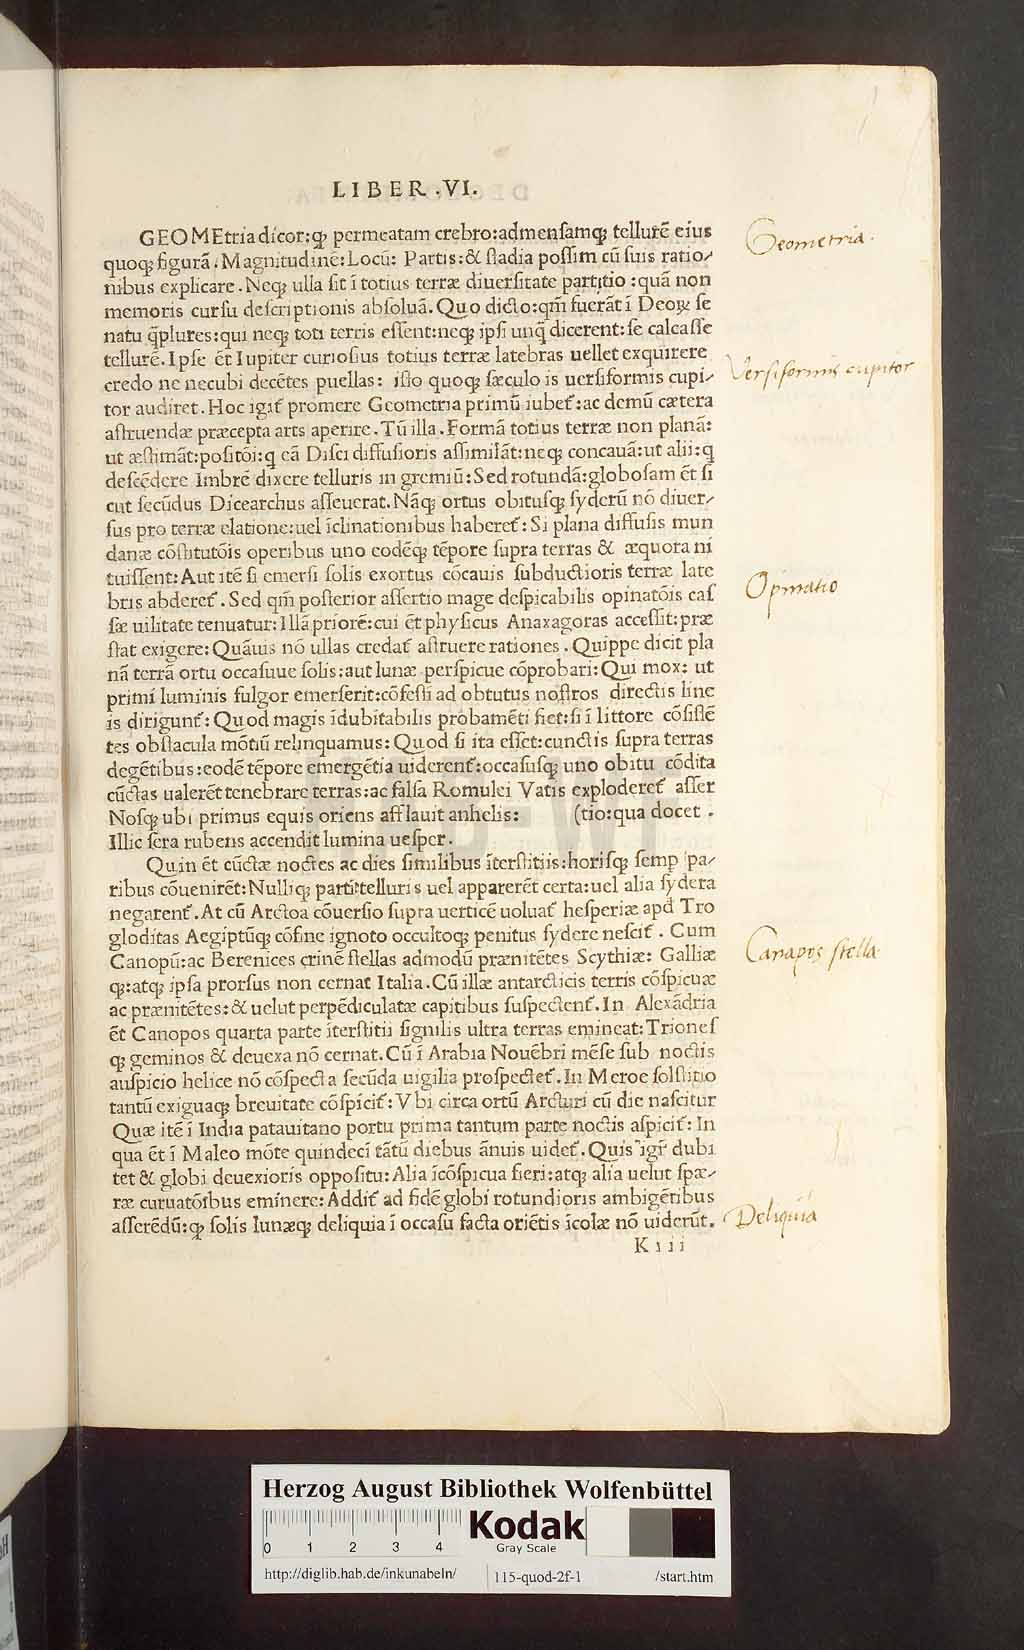 LIBER .VI.
GEOMEtria dicor:qꝫ permeatam crebro:admensamqꝫ tellurē eius Geometria.
quoqꝫ figurā. Magnitudinē: Locū: Partis:& stadia possim cū suis ratio⸗
nibus explicare. Neqꝫ ulla sit ī totius terræ diuersitate partitio:quā non
memoris cursu descriptionis absoluā. Quo dicto:qm̄ fuerāt ī Deoꝝ se
natu q̄plures:qui neqꝫ toti terris essent:neqꝫ ipsi unq̄ dicerent:se calcasse
tellurē. Ipse ēt Iupiter curiosius totius terræ latebras uellet exquirere
credo ne necubi decētes puellas: isto quoqꝫ sæculo is uersiformis cupi⸗ Versiformis cupitor
tor audiret. Hoc igit̄ promere Geometria primū iubet̄:ac demū cætera
astruendæ præcepta arts aperire. Tū illa. Formā totius terræ non planā:
ut æstimāt:positōi:q eā Disci diffusioris assimilāt:neqꝫ concauā:ut alii:q
descēdere Imbrē dixere telluris in gremiū: Sed rotundā:globosam ēt si
cut secūdus Dicearchus asseuerat. Nāqꝫ ortus obitusqꝫ syderū nō diuer⸗
sus pro terræ elatione:uel īclinationibus haberet̄: Si plana diffusis mun
danæ cōstitutōis operibus uno eodēqꝫ tēpore supra terras & æquora ni
tuissent: Aut itē si emersi solis exortus cōcauis subductioris terræ late
bris abderet̄. Sed qm̄ posterior assertio mage despicabilis opinatōis cas Opinatio
sæ uilitate tenuatur: Illā priorē:cui ēt physicus Anaxagoras accessit:præ
stat exigere: Quāuis nō ullas credat̄ astruere rationes. Quippe dicit pla
nā terrā ortu occasuue solis:aut lunæ perspicue cōprobari: Qui mox: ut
primi luminis fulgor emerserit:cōfesti ad obtutus nostros directis line
is dirigunt̄: Quod magis īdubitabilis probamēti fiet:si ī littore cōsistē
tes obstacula mōtiū relinquamus: Quod si ita esset:cunctis supra terras
degētibus:eodē tēpore emergētia uiderent̄:occasusqꝫ uno obitu cōdita
cūctas ualerēt tenebrare terras:ac falsa Romulei Vatis exploderet̄ asser
Nosqꝫ ubi primus equis oriens afflauit anhelis: (tio:qua docet.
Illic sera rubens accendit lumina uesper.
Quin ēt cūctæ noctes ac dies similibus īterstitiis:horisqꝫ semp pa⸗
ribus cōuenirēt: Nulliqꝫ parti telluris uel apparerēt certa:uel alia sydera
negarent̄. At cū Arctoa cōuersio supra uerticē uoluat̄ hesperiæ apd̄ Tro
gloditas Aegiptūqꝫ cōfine ignoto occultoqꝫ penitus sydere nescit̄. Cum
Canopū:ac Berenices crinē stellas admodū prænitētes Scythiæ: Galliæ Canapos stella
qꝫ:atqꝫ ipsa prorsus non cernat Italia. Cū illæ antarcticis terris cōspicuæ
ac prænitētes:& uelut perpēdiculatæ capitibus suspectent̄. In Alexādria
ēt Canopos quarta parte īterstitii signilis ultra terras emineat: Triones
qꝫ geminos & deuexa nō cernat. Cū ī Arabia Nouēbri mēse sub noctis
auspicio helice nō cōspecta secūda uigilia prospectet̄. In Meroe solstitio
tantū exiguaqꝫ breuitate cōspicit̄: Vbi circa ortū Arcturi cū die nascitur
Quæ itē ī India patauitano portu prima tantum parte noctis aspicit̄: In
qua ēt ī Maleo mōte quindeci tātū diebus ānuis uidet̄. Quis igr̄ dubi
tet & globi deuexioris oppositu: Alia īcōspicua fieri:atqꝫ alia uelut spæ⸗
ræ curuatōibus eminere: Addit̄ ad fidē globi rotundioris ambigētibus
asserēdū:qꝫ solis lunæqꝫ deliquia ī occasu facta oriētis īcolæ nō uiderūt. Deliquia
K iii
HAB-WF
Herzog August Bibliothek Wolfenbüttel
0 1 2 3 4 Kodak
Gray Scale
http://diglib.hab.de/inkunabeln/ 115-quod-2f-1 /start.htm